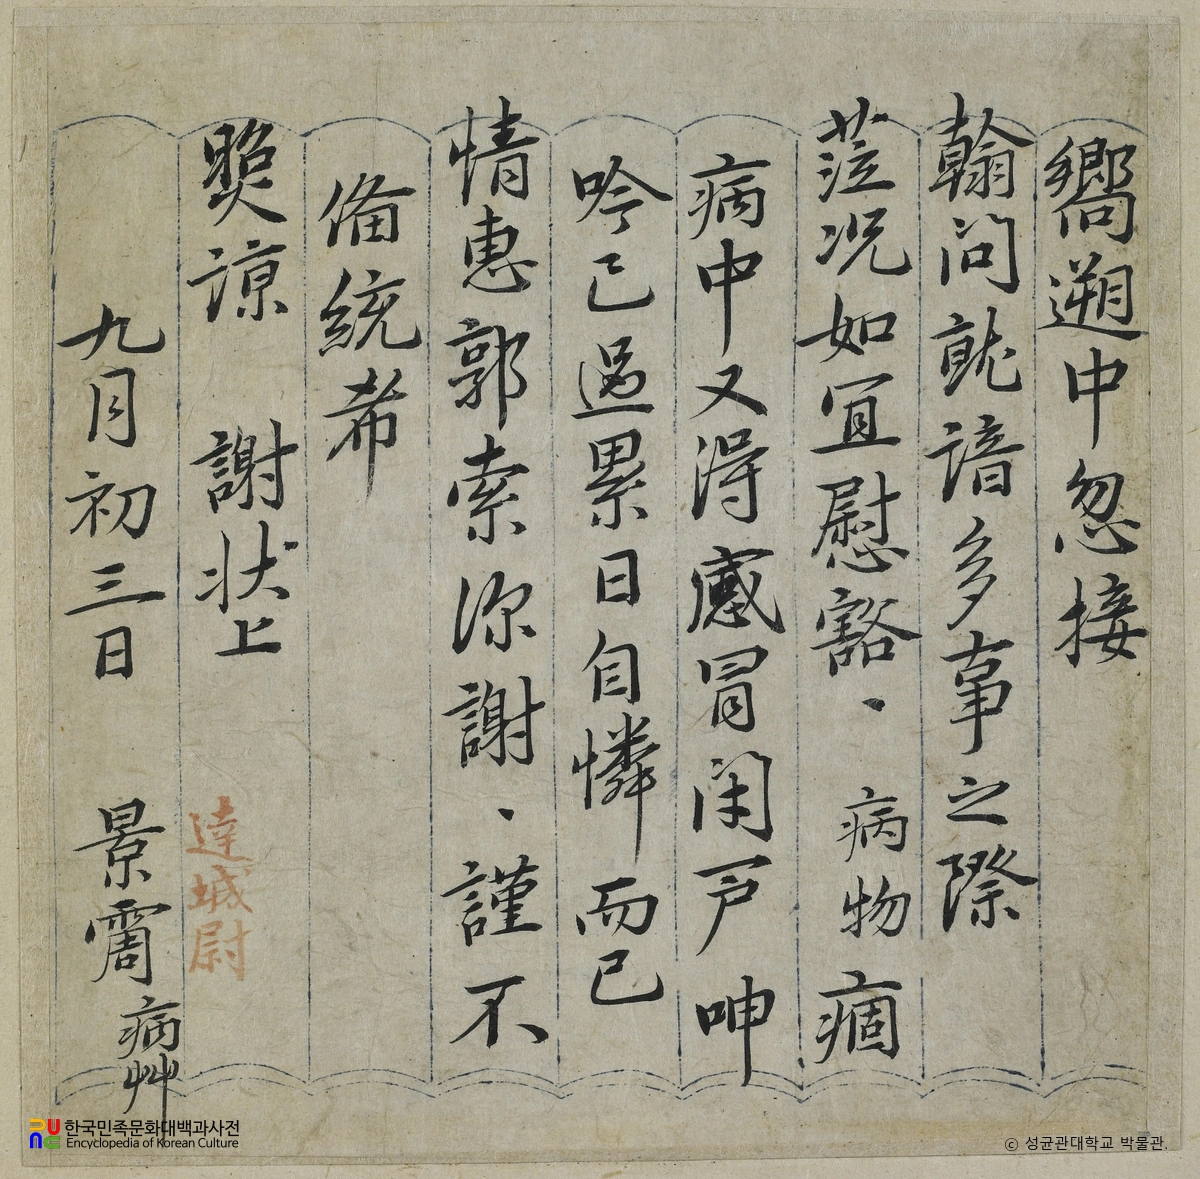 嚮遡中忽接
翰問就諳多事之際
莅况如宜慰豁、病物痼
病中又得感冒閉戶呻
吟已過累日自憐而已
情惠郭索深謝、謹不
備統希
煚諒 謝狀上
達城尉
九月初三日 景霌 病艸
한국민족문화대백과사전
Encyclopedia of Korean Culture
ⓒ 성균관대학교 박물관.